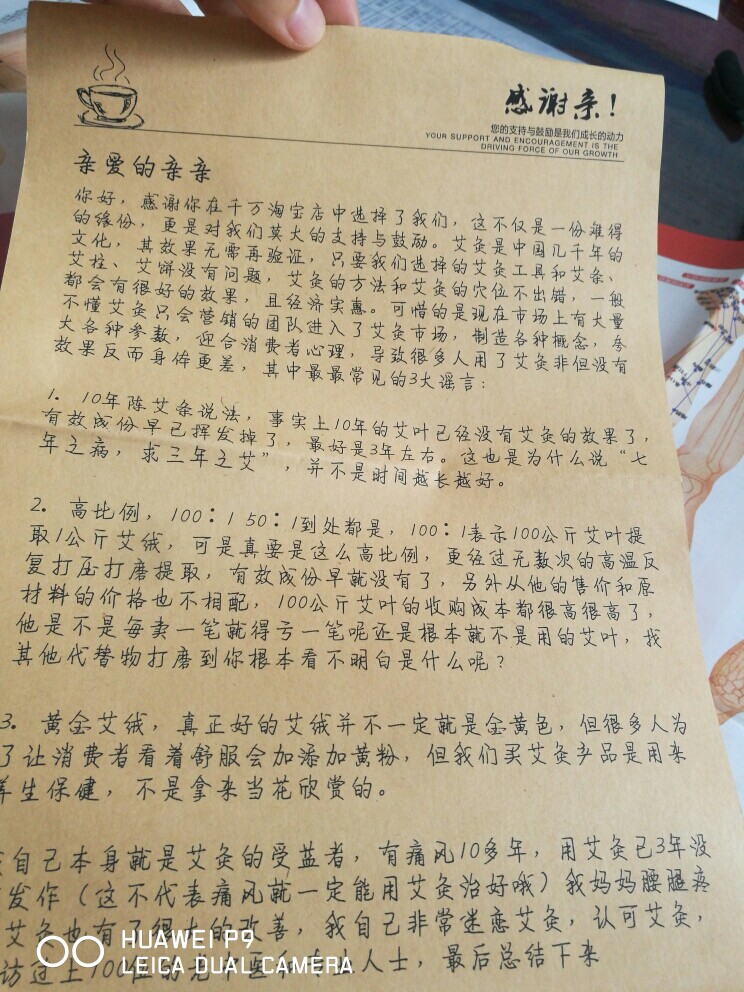 感谢亲!
您的支持与鼓励是我们成长的动力
YOUR SUPPORT AND ENCOURAGEMENT IS THE
DRIVING FORCE OF OUR GROWTH
亲爱的亲亲
你好,感谢你在千万淘宝店中选择了我们,这不仅是一份难得
的缘份,更是对我们莫大的支持与鼓励。艾灸是中国几千年的
文化,其效果无需再验证,只要我们选择的艾灸工具和艾条、
艾柱、艾饼没有问题,艾灸的方法和艾灸的穴位不出错,一般
都会有很好的效果,且经济实惠。可惜的是现在市场上有大量
不懂艾灸只会营销的团队进入了艾灸市场,制造各种概念,夸
大各种参数,迎合消费者心理,导致很多人用了艾灸非但没有
效果反而身体更差,其中最最常见的3大谣言:
1. 10年陈艾条说法,事实上10年的艾叶已经没有艾灸的效果了,
有效成份早已挥发掉了,最好是3年左右。这也是为什么说“七
年之病,求三年之艾”,并不是时间越长越好。
2. 高比例,100:1 50:1到处都是,100:1表示100公斤艾叶提
取1公斤艾绒,可是真要是这么高比例,更经过无数次的高温反
复打压打磨提取,有效成份早就没有了,另外从他的售价和原
材料的价格也不相配,100公斤艾叶的收购成本都很高很高了,
他是不是每卖一笔就得亏一笔呢还是根本就不是用的艾叶,找
其他代替物打磨到你根本看不明白是什么呢?
3. 黄金艾绒,真正好的艾绒并不一定就是金黄色,但很多人为
了让消费者看着舒服会加添加黄粉,但我们买艾灸产品是用来
养生保健,不是拿来当花欣赏的。
自己本身就是艾灸的受益者,有痛风10多年,用艾灸已3年没
发作(这不代表痛风就一定能用艾灸治好哦)我妈妈腰腿疼
艾灸也有了很大的改善,我自己非常迷恋艾灸,认可艾灸,
访过上100位的老中医和专业人士,最后总结下来
HUAWEI P9
LEICA DUAL CAMERA